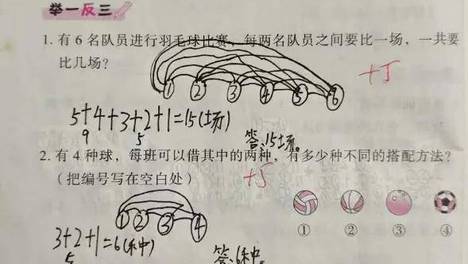 举一反三
1. 有6名队员进行羽毛球比赛，每两名队员之间要比一场，一共要
比几场？
+5
① ② ③ ④ ⑤ ⑥
5+4+3+2+1=15(场)
9 5
答:15场。
2. 有4种球，每班可以借其中的两种，有多少种不同的搭配方法？
+5
（把编号写在空白处）
① ② ③ ④
① ② ③ ④
3+2+1=6(种)
5
答:6种。